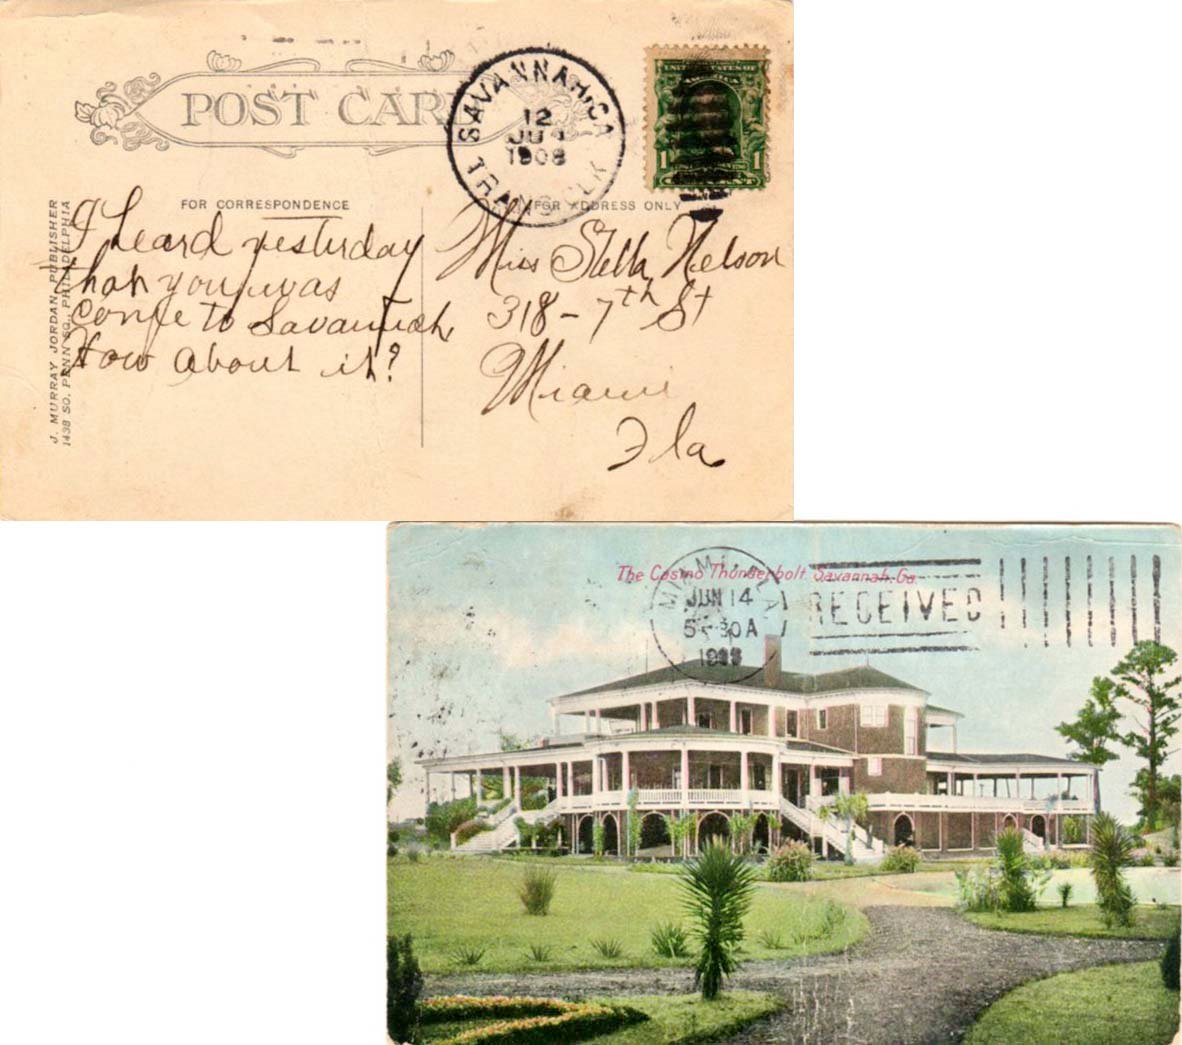 POST CARD
SAVANNAH, GA
12
JU
1908
TRANS. CLK
1 1
FOR CORRESPONDENCE
FOR ADDRESS ONLY
J. MURRAY JORDAN, PUBLISHER
1438 SO. PENN SQ., PHILADELPHIA
I heard yesterday
that you was
come to Savannah
How about it?
Miss Stella Nelson
318 - 7th St
Miami
Fla
The Casino Thunderbolt. Savannah. Ga.
MIAMI, FLA
JUN 14
5-30A
1908
RECEIVED